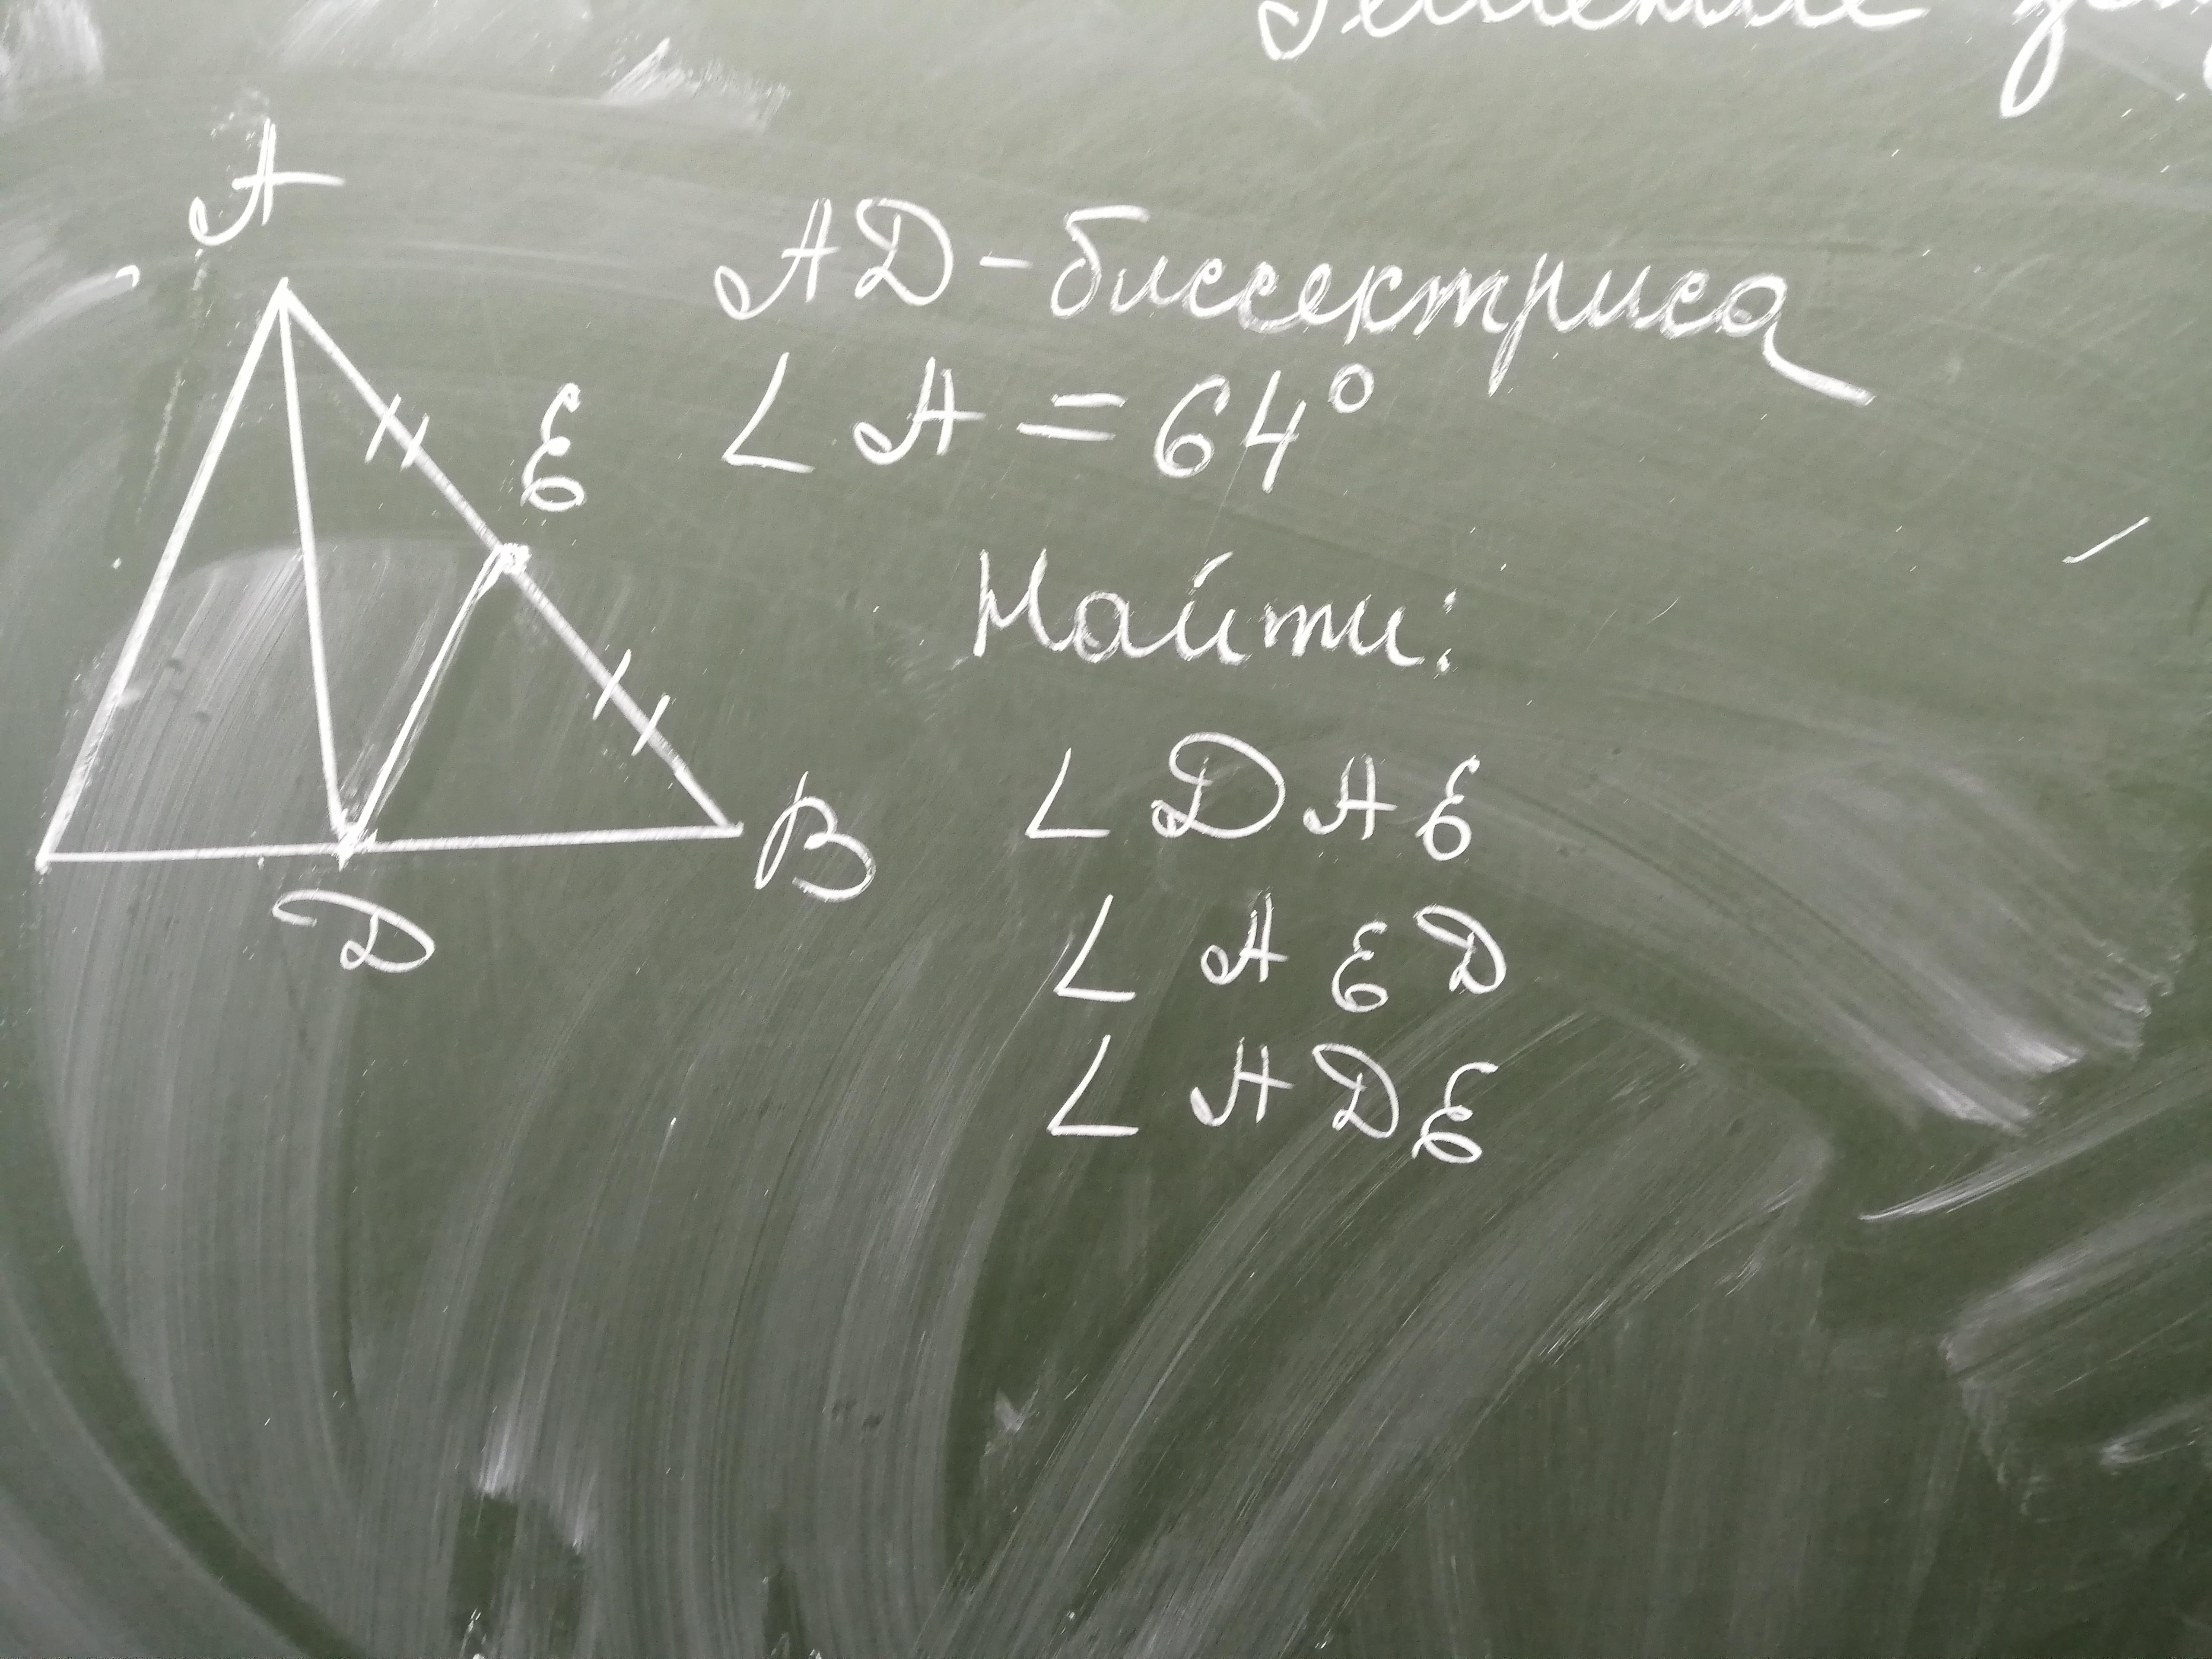 Решение
A
E
B
D
AD - биссектриса
∠ A = 64°
Найти:
∠ DAE
∠ AED
∠ ADE